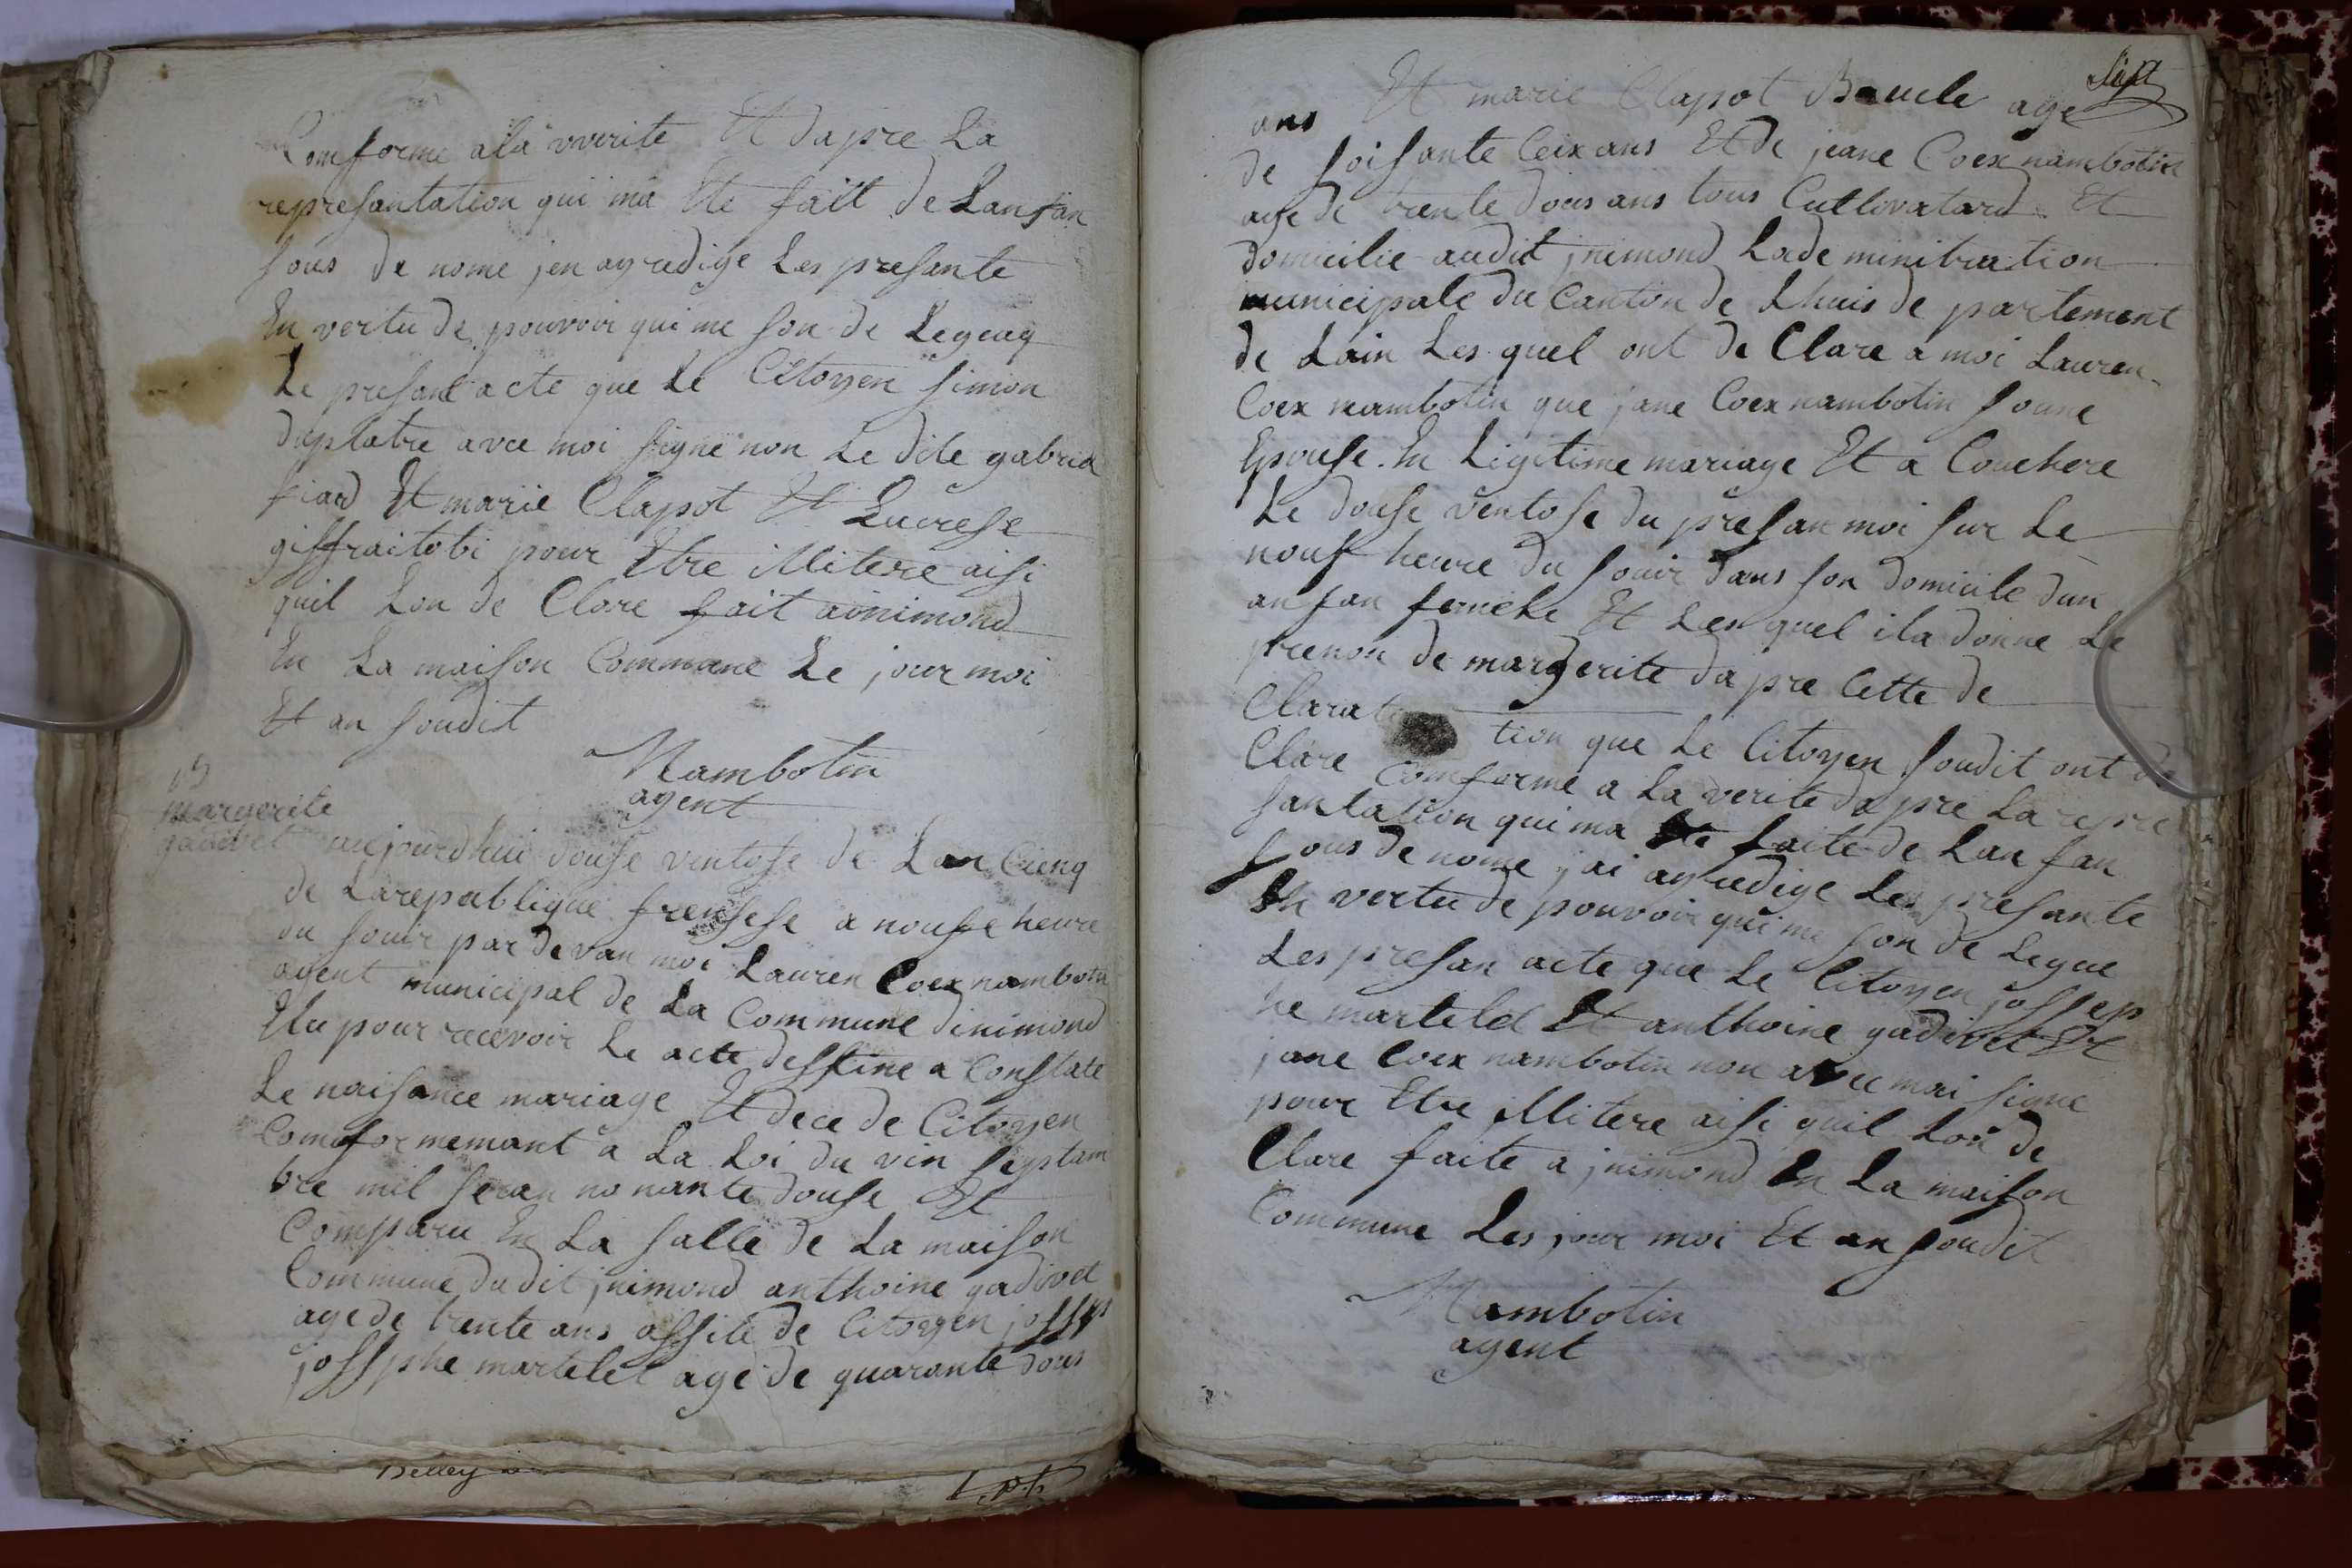 Comforme ala vverite Et dapre La
represantation qui ma Ete fait de Lanfan
sous de nome jen ay redige Les presante
En vertu de pouvoir qui me son de Legeaq
Le presant acte que Le Citoyen simon
duplatre avec moi signe non Le dite gabriel
fiard Et marie Clapot Et Lucrese
giffraitobi pour Etre illitere aisi
quil Lon de Clare fait ainimond
En La maison Commune Le jour moi
Et an soudit
Nambotin
agent
margerite
gadivet
aujourdhui douse ventose de Lan Cienq
de Larepublique fransese a noufe heure
du souir par devan moi Lauren Coex nambotin
agent municipal de La Commune dinimond
Elu pour recevoir Le acte desstine a Constate
Le naisance mariage Et dece de Citoyen
Comformemant a La Loi du vin septam
bre mil sean nonante douse Et
Comparu En La salle de La maison
Commune dudit jnimond anthoine gadivet
age de trente ans assite de Citoyen josseps
jossphe martelet age de quarante dous
Belley
Sept
Et marie Clapot Boucle age
ans
de soisante Ceix ans Et de jeane Coex nambotin
age de trente dous ans tous Cultivatard Et
domicilie audit jnimond Lade minitration
municipale du Canton de Lhuis de partement
de Lain Les quel ont de Clare a moi Lauren
Coex nambotin que jane Coex nambotin soune
Epouse En Ligitime mariage Et a Couchere
Le douse ventose du presan moi sur Le
nouf heure du souir dans son domicile dun
anfan femele Et Les quel ila donne Le
prenon de margerite dapre Cette de
Clarat tion que Le Citoyen soudit ont de
Clare Comforme a La verite dapre La repre
santation qui ma Ete faite de Lan fan
sous de nome jai ay redige Les presante
En vertu de pouvoir qui me son de Legue
Les presan acte que Le Citoyen jossep
he martelet Et anthoine gadivet Et
jane Coex nambotin non avec moi signe
pour Etre illitere aisi quil Lon de
Clare faite a jnimond En La maison
Commune Les jour moi Et an soudit
Nambotin
agent